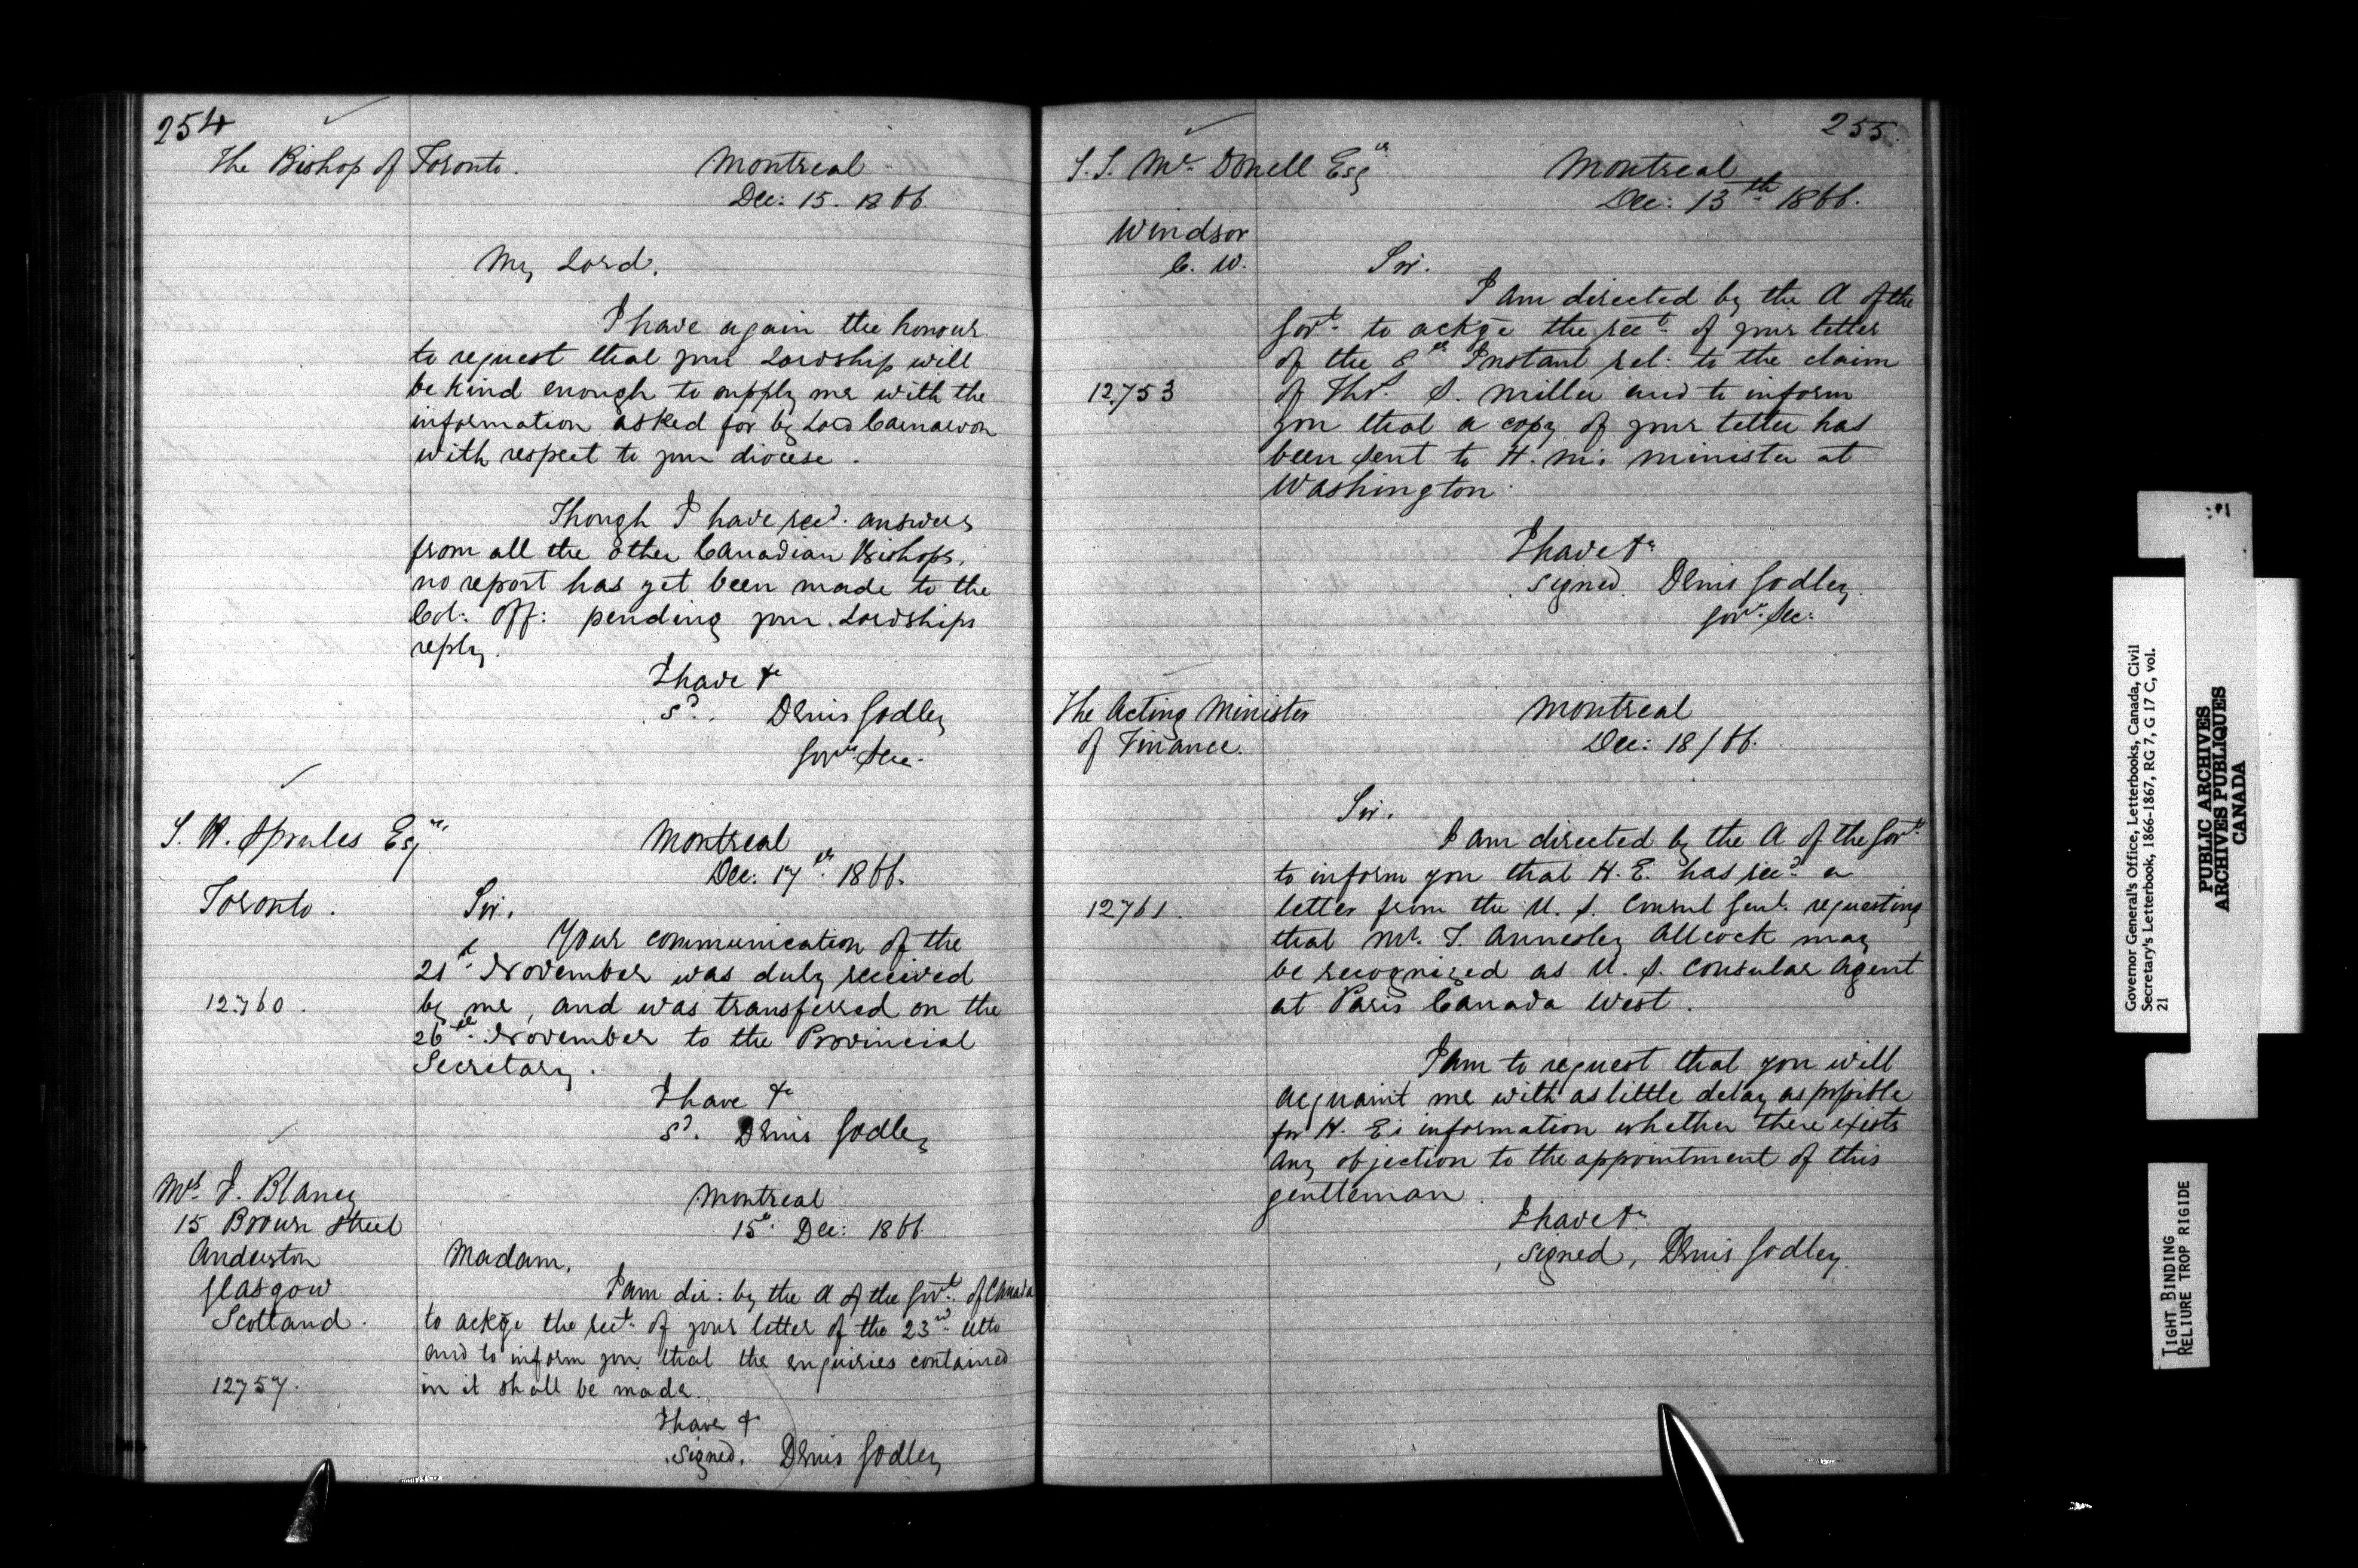 254
The Bishop of Toronto.
Montreal
Dec: 15. 1866.
My Lord,
I have again the honour
to request that your Lordship will
be kind enough to supply me with the
information asked for by Lord Carnarvon
with respect to your diocese.
Though I have recd. answers
from all the other Canadian Bishops,
no report has yet been made to the
Col: Off: pending your Lordships
reply.
I have &c
Sd. Denis Godley
Govr. Sec.
S. W. Sprules Esqre,
Toronto.
Montreal
Dec: 17th. 1866.
Sir,
Your communication of the
21st. November was duly received
12760.
by me, and was transferred on the
26th. November to the Provincial
Secretary.
I have &c
Sd. Denis Godley
Mrs. J. Blaney
15 Brown Street
Anderston
Glasgow
Scotland.
Montreal
15th. Dec: 1866
Madam,
I am dir: by the A of the Govt. of Canada
to ackge the rect. of your letter of the 23rd. Ulto
and to inform you that the enquiries contained
12757.
in it shall be made.
I have &
Signed. Denis Godley
255.
S. S. Mc. Donell Esqr.
Windsor
C. W.
Montreal
Dec: 13th. 1866.
Sir.
I am directed by the A of the
Govt. to ackge the rect. of your letter
of the 8th Instant rel: to the claim
12753
of Thos. S. Miller and to inform
you that a copy of your letter has
been sent to H. M's Minister at
Washington.
I have &c
Signed. Denis Godley.
Govr. Sec:
The Acting Minister
of Finance.
Montreal
Dec: 18/66.
Sir.
I am directed by the A of the Govt.
to inform you that H. E. has recd. a
12761.
letter from the U. S. Consul Genl. requesting
that Mr. J. Annesley Allcock may
be recognized as U. S. Consular Agent
at Paris Canada West.
I am to request that you will
acquaint me with as little delay as possible
for H. E's information whether there exists
any objection to the appointment of this
gentleman.
I have &c.
Signed, Denis Godley.
Governor General's Office, Letterbooks, Canada, Civil
Secretary's Letterbook, 1866-1867, RG 7, G 17 C, vol.
21
PUBLIC ARCHIVES
ARCHIVES PUBLIQUES
CANADA
TIGHT BINDING
RELIURE TROP RIGIDE